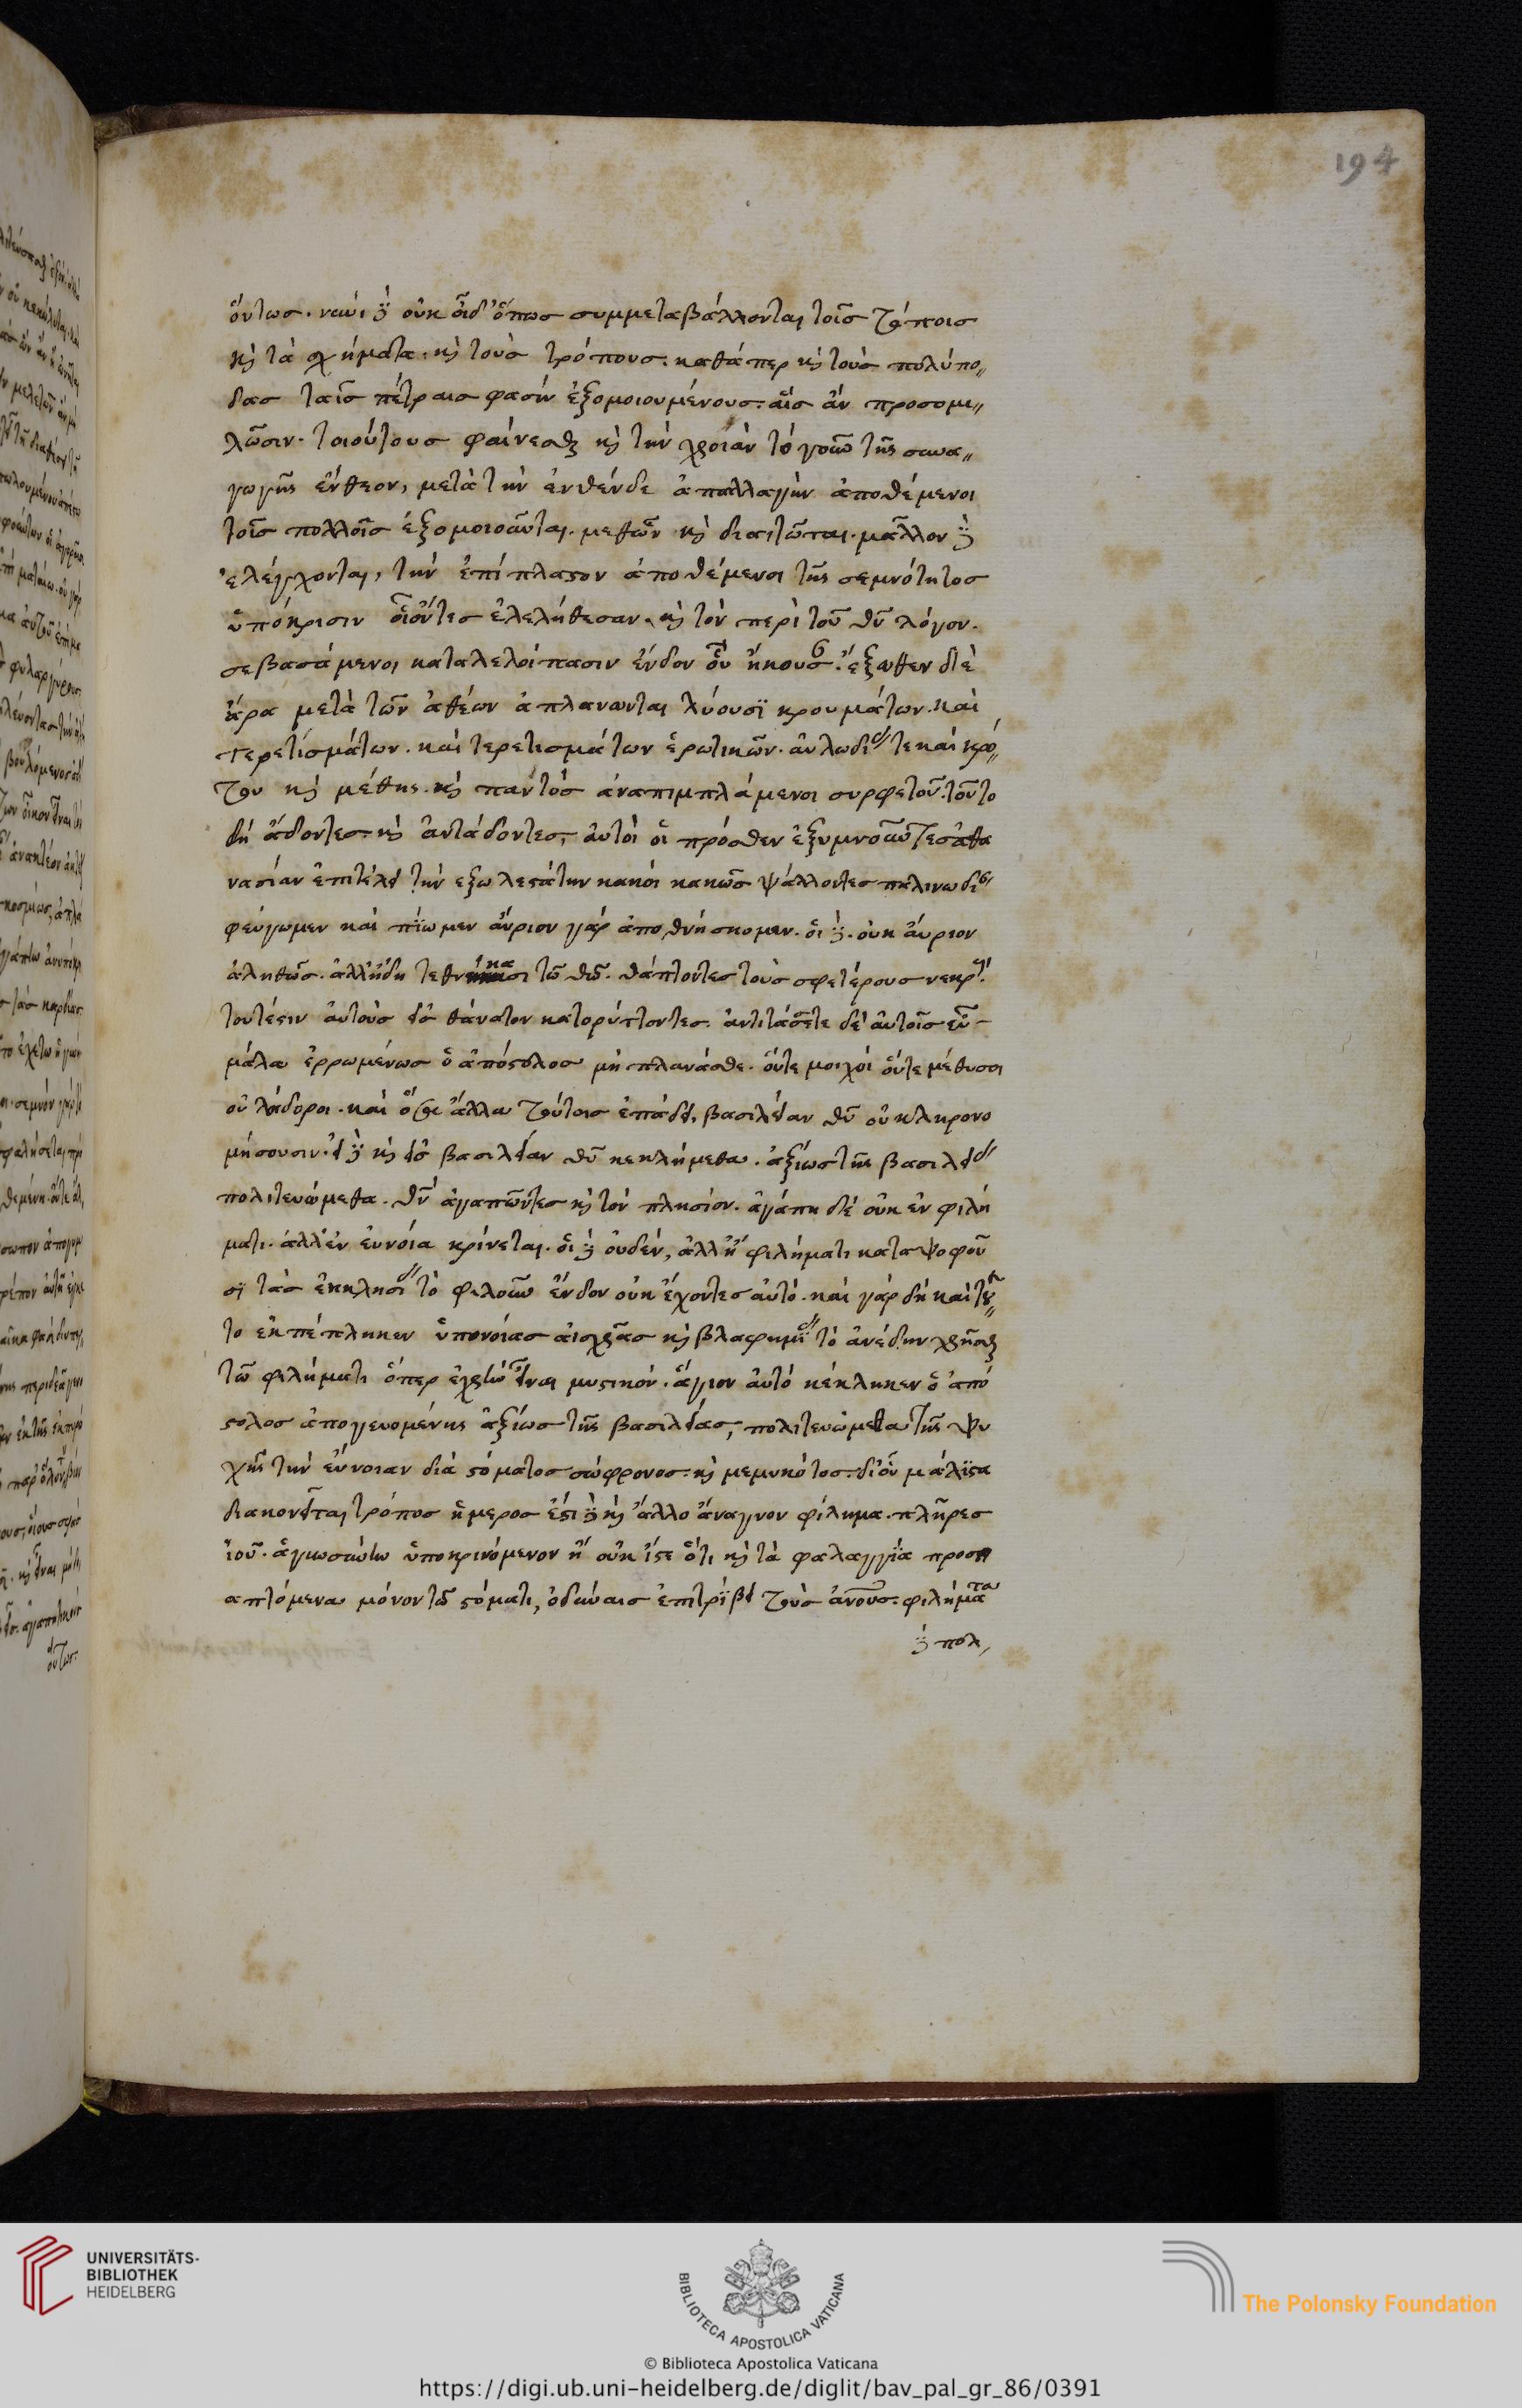 194
όντως. νυνὶ δὲ οὐκ οἶδ' ὅπως συμμεταβάλλονται τοῖς τόποις
καὶ τὰ σχήματα. καὶ τοὺς τρόπους. καθάπερ καὶ τοὺς πολύπο
δας ταῖς πέτραις φασὶν ἐξομοιουμένους. αἷς ἂν προσομι
λῶσιν. τοιούτους φαίνεσθαι καὶ τὴν χροιὰν τὸ γοῦν τῆς συνα
γωγῆς ἔνθεον, μετὰ τὴν ἐνθένδε ἀπαλλαγὴν ἀποθέμενοι
τοῖς πολλοῖς ἐξομοιοῦνται. μεθ' ὧν καὶ διαιτῶνται. μᾶλλον δὲ
ἐλέγχονται, τὴν ἐπίπλαστον ἀποθέμενοι τῆς σεμνότητος
ὑπόκρισιν οἷοι ὄντες ἐλελήθεσαν. καὶ τὸν περὶ τοῦ θῦ λόγον.
σεβασάμενοι καταλελοίπασιν ἔνδον οὗ ἤκουσαν. ἔξωθεν δὲ
ἄρα μετὰ τῶν ἀθέων ἀπλανωνται λύουσϊ κρουμάτων. καὶ
τερετισμάτων. καὶ τερετισμάτων ἐρωτικῶν. αὐλωδίας τε καὶ κρό
του καὶ μέθης. καὶ παντὸς ἀναπιμπλάμενοι συρφετοῦ. τοῦτο
δὴ ᾄδοντες. καὶ ἀντάδοντες, αὐτοὶ οἱ πρόσθεν ἐξυμνοῦντες ἀθα
νασίαν ἐπιτέλει τὴν ἐξωλεστάτην κακοὶ κακῶς ψάλλοντες παλινωδίαν
φεύγωμεν καὶ πΐωμεν αὔριον γὰρ ἀποθνήσκομεν. οἱ δὲ. οὐκ αὔριον
ἀληθῶς. ἀλλ' ἤδη τεθνήκασι τῶ θῶ. θάπτοντες τοὺς σφετέρους νεκρούς.
τουτέστιν αὐτοὺς εἰς θάνατον κατορύττοντες. ἀντιτάσσεται δὲ αὐτοῖς εὖ
μάλα ἐρρωμένως ὁ ἀπόστολος μὴ πλανᾶσθε. οὔτε μοιχοὶ οὔτε μέθυσοι
οὐ λοίδοροι. καὶ ὅσα ἄλλα τούτοις ἐπάδει, βασιλείαν θῦ οὐ κληρονο
μήσουσιν. εἰ δὲ καὶ εἰς βασιλείαν θῦ κεκλήμεθα. ἀξίως τῆς βασιλείας
πολιτευώμεθα. θν ἀγαπῶντες καὶ τὸν πλησίον. ἀγάπη δὲ οὐκ ἐν φιλή
ματι. ἀλλ' ἐν εὐνοία κρίνεται. οἱ δὲ οὐδέν, ἀλλ' ἢ φιλήματι καταψοφοῦ
σϊ τὰς ἐκκλησίας τὸ φιλοῦν ἔνδον οὐκ ἔχοντες αὐτό. καὶ γὰρ δὴ καὶ τοῦ
το ἐκπέπληκεν ὑπονοίας αἰσχρᾶς καὶ βλασφημίας τὸ ἀνέδην χρῆσθαι
τῶ φιλήματι ὅπερ ἐχρῆν εἶναι μυστικόν. ἅγιον αὐτὸ κέκληκεν ὁ ἀπό
στολος ἀπογευομένης ἀξίως τῆς βασιλείας, πολιτευώμεθα τῆς ψυ
χῆς τὴν εὔνοιαν διὰ στόματος σώφρονος. καὶ μεμυκότος. δι' οὗ μάλϊστα
διακονεῖται τρόπος ἥμερος ἔστι δὲ καὶ ἄλλο ἄναγνον φίλημα. πλῆρες
ἰοῦ. ἁγιωσύνην ὑποκρινόμενον ἢ οὐκ ἴστε ὅτι καὶ τὰ φαλαγγΐα προσ
απτόμενα μόνον τῶ στόματι, ὀδύναις ἐπιτρΐβει τοὺς ἀνους. φιλήματα
δὲ πολ
UNIVERSITÄTS-
BIBLIOTHEK
HEIDELBERG
BIBLIOTECA APOSTOLICA VATICANA
The Polonsky Foundation
© Biblioteca Apostolica Vaticana
https://digi.ub.uni-heidelberg.de/diglit/bav_pal_gr_86/0391